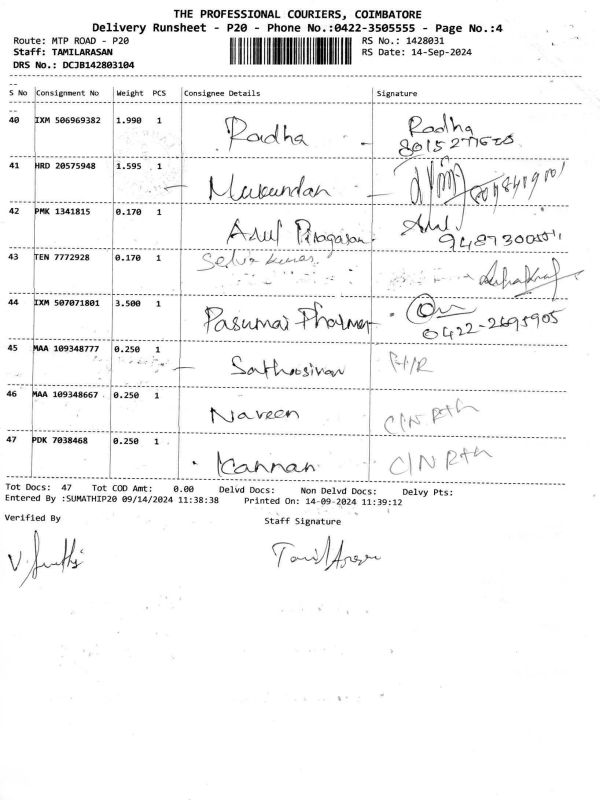 THE PROFESSIONAL COURIERS, COIMBATORE
Delivery Runsheet - P20 - Phone No.:0422-3505555 - Page No.:4
Route: MTP ROAD - P20 RS No.: 1428031
Staff: TAMILARASAN RS Date: 14-Sep-2024
DRS No.: DCJB142803104
S No Consignment No Weight PCS Consignee Details Signature
40 IXM 506969382 1.990 1 Radha - Radha
41 HRD 20575948 1.595 1 - Mukundan -
42 PMK 1341815 0.170 1
43 TEN 7772928 0.170 1 Selva kumar
44 IXM 507071801 3.500 1 Pasumai
0422-2695905
45 MAA 109348777 0.250 1 -
46 MAA 109348667 0.250 1 Naveen C/N R+h
47 PDK 7038468 0.250 1 Kannan C/N R+h
Tot Docs: 47 Tot COD Amt: 0.00 Delvd Docs: Non Delvd Docs: Delvy Pts:
Entered By :SUMATHIP20 09/14/2024 11:38:38 Printed On: 14-09-2024 11:39:12
Verified By Staff Signature